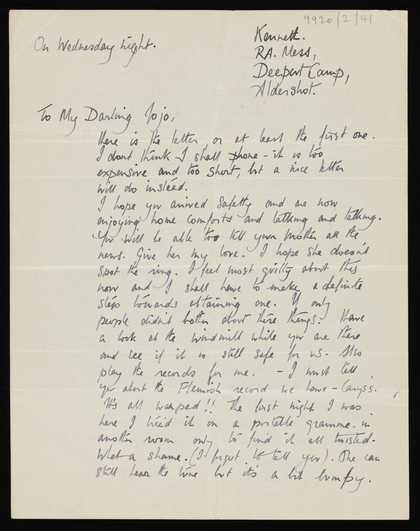 9920/2/41
On Wednesday night.
Kennett.
RA. Mess,
Deepcut Camp,
Aldershot.
To My Darling Jojo,
Here is the letter, or at least the first one.
I don't think I shall phone - it is too
expensive and too short, but a nice letter
will do instead.
I hope you arrived safely and are now
enjoying home comforts and talking and talking.
You will be able too tell your mother all the
news. Give her my love. I hope she doesn't
spot the ring. I feel most guilty about this
now and I shall have to make a definite
step towards obtaining one. If only
people didn't bother about these things. Have
a look at the windmill while you are there
and see if it is still safe for us. Also
play the records for me. - I must tell
you about the Flemish record we have -
It's all warped!! The first night I was
here I tried it on a portable gramme. in
another room only to find it all twisted.
What a shame. (I forgot to tell you). One can
still hear the tune but it's a bit bumpy.